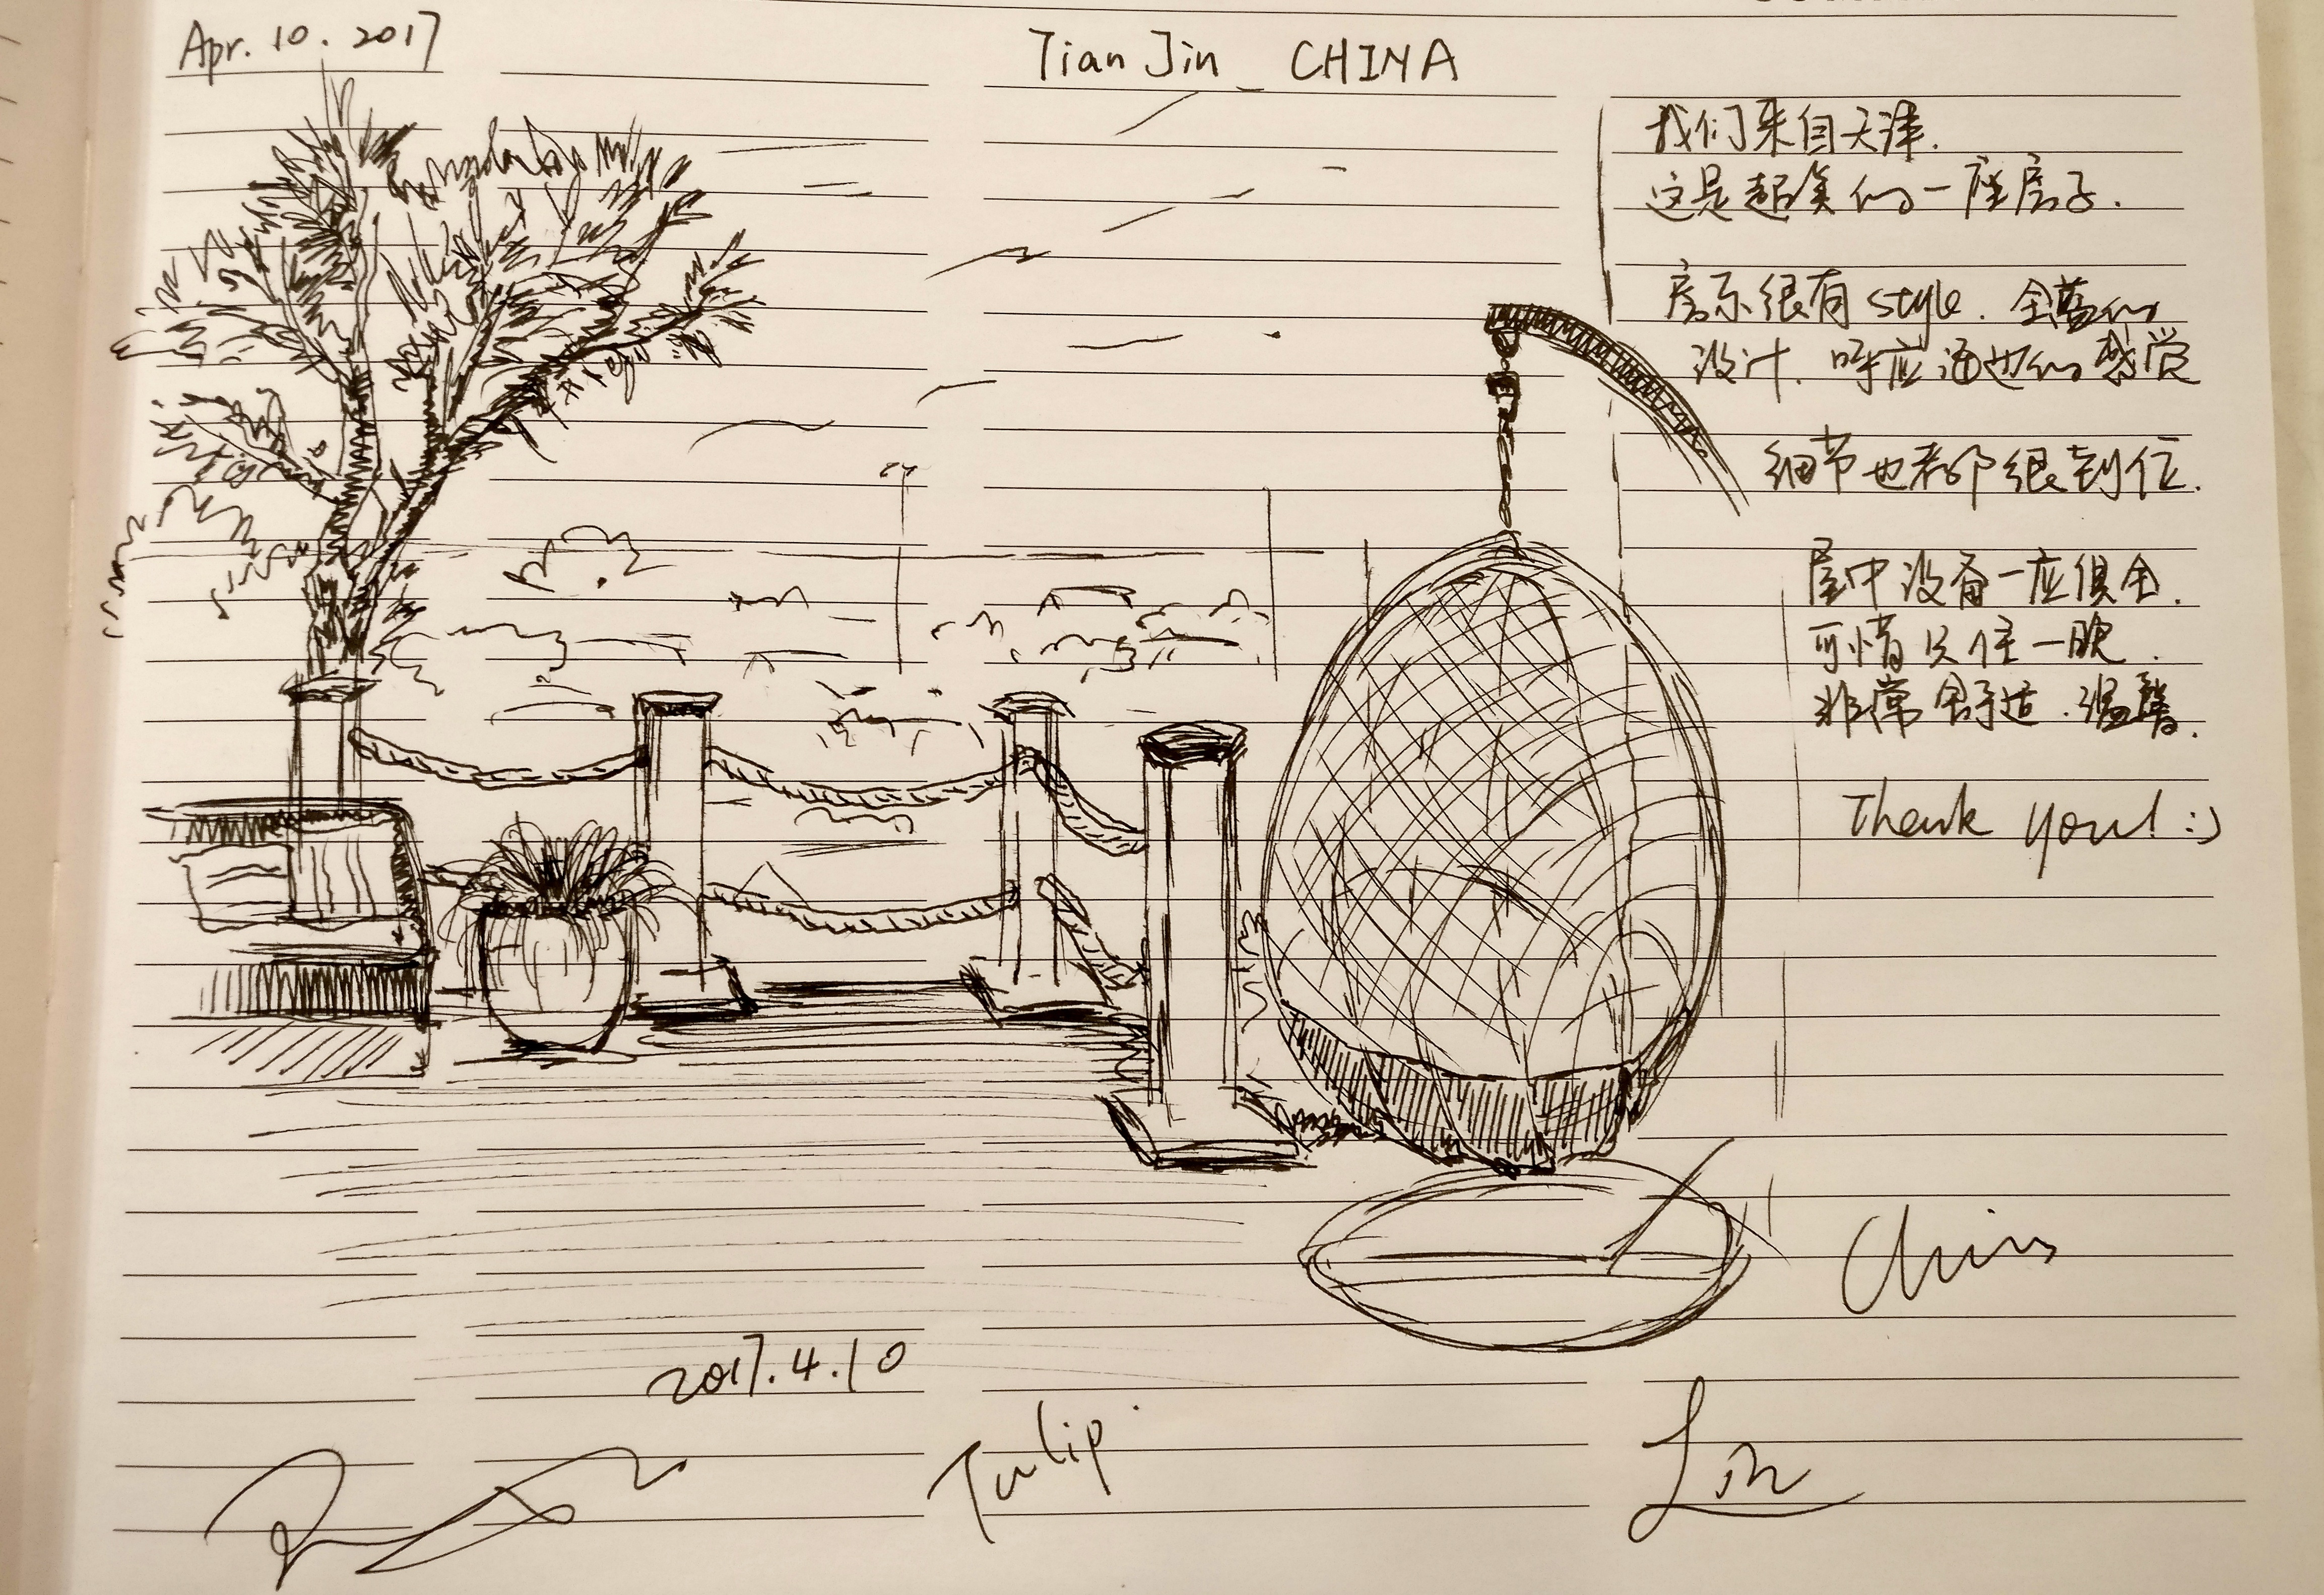 Apr. 10. 2017
Tian Jin CHINA
我们来自天津.
这是超美的一座房子.
房东很有style. 全蓝的
设计. 呼应海边的感觉
细节也都很到位.
屋中设备一应俱全.
可惜只住一晚.
非常舒适.温馨.
Thank you! :)
Chris
2017.4.10
Tulip
Lin